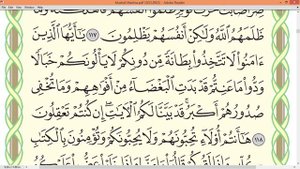 Mushaf Madina.pdf - Adobe Reader
ظَلَمَهُمُ ٱللَّهُ وَلَٰكِنْ أَنفُسَهُمْ يَظْلِمُونَ ١١٧ يَٰٓأَيُّهَا ٱلَّذِينَ
ءَامَنُوا۟ لَا تَتَّخِذُوا۟ بِطَانَةً مِّن دُونِكُمْ لَا يَأْلُونَكُمْ خَبَالًا
وَدُّوا۟ مَا عَنِتُّمْ قَدْ بَدَتِ ٱلْبَغْضَآءُ مِنْ أَفْوَٰهِهِمْ وَمَا تُخْفِى
صُدُورُهُمْ أَكْبَرُ قَدْ بَيَّنَّا لَكُمُ ٱلْءَايَٰتِ إِن كُنتُمْ تَعْقِلُونَ ١١٨
هَٰٓأَنتُمْ أُو۟لَآءِ تُحِبُّونَهُمْ وَلَا يُحِبُّونَكُمْ وَتُؤْمِنُونَ بِٱلْكِتَٰبِ